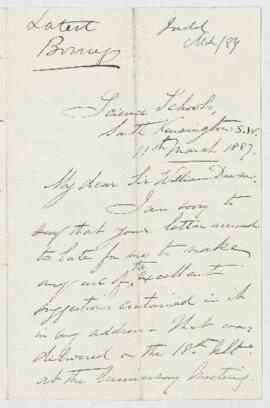 Latest
Judd
Mch/89
Science Schools,
South Kensington S.W.
11th March 1887.
My dear Sir William Dawson,
I am sorry to
say that your letter arrived
to late for me to make
any use of the excellent
suggestions contained in it
in my address - that was
delivered on the 18th ult.
at the Anniversary Meeting.